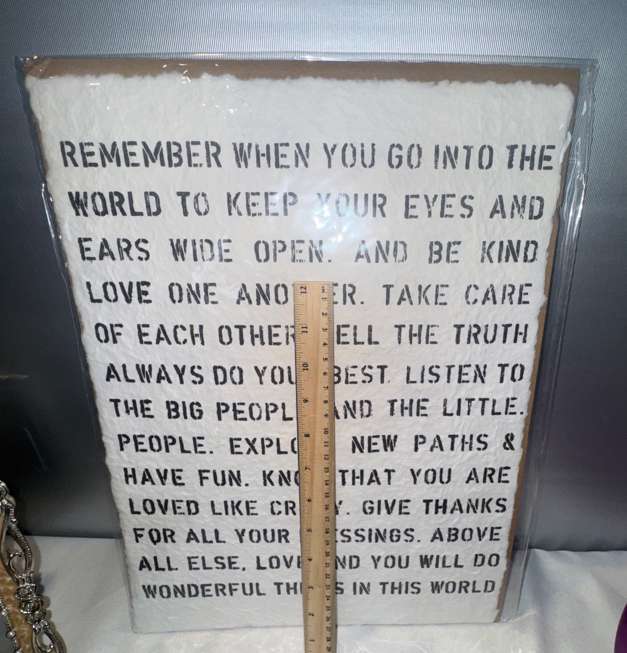 REMEMBER WHEN YOU GO INTO THE
WORLD TO KEEP YOUR EYES AND
EARS WIDE OPEN. AND BE KIND
LOVE ONE ANOTHER. TAKE CARE
OF EACH OTHER TELL THE TRUTH
ALWAYS DO YOUR BEST. LISTEN TO
THE BIG PEOPLE AND THE LITTLE.
PEOPLE. EXPLORE NEW PATHS &
HAVE FUN. KNOW THAT YOU ARE
LOVED LIKE CRAZY. GIVE THANKS
FOR ALL YOUR BLESSINGS. ABOVE
ALL ELSE, LOVE AND YOU WILL DO
WONDERFUL THINGS IN THIS WORLD
12
11
10
9
8
7
6
5
4
3
2
1